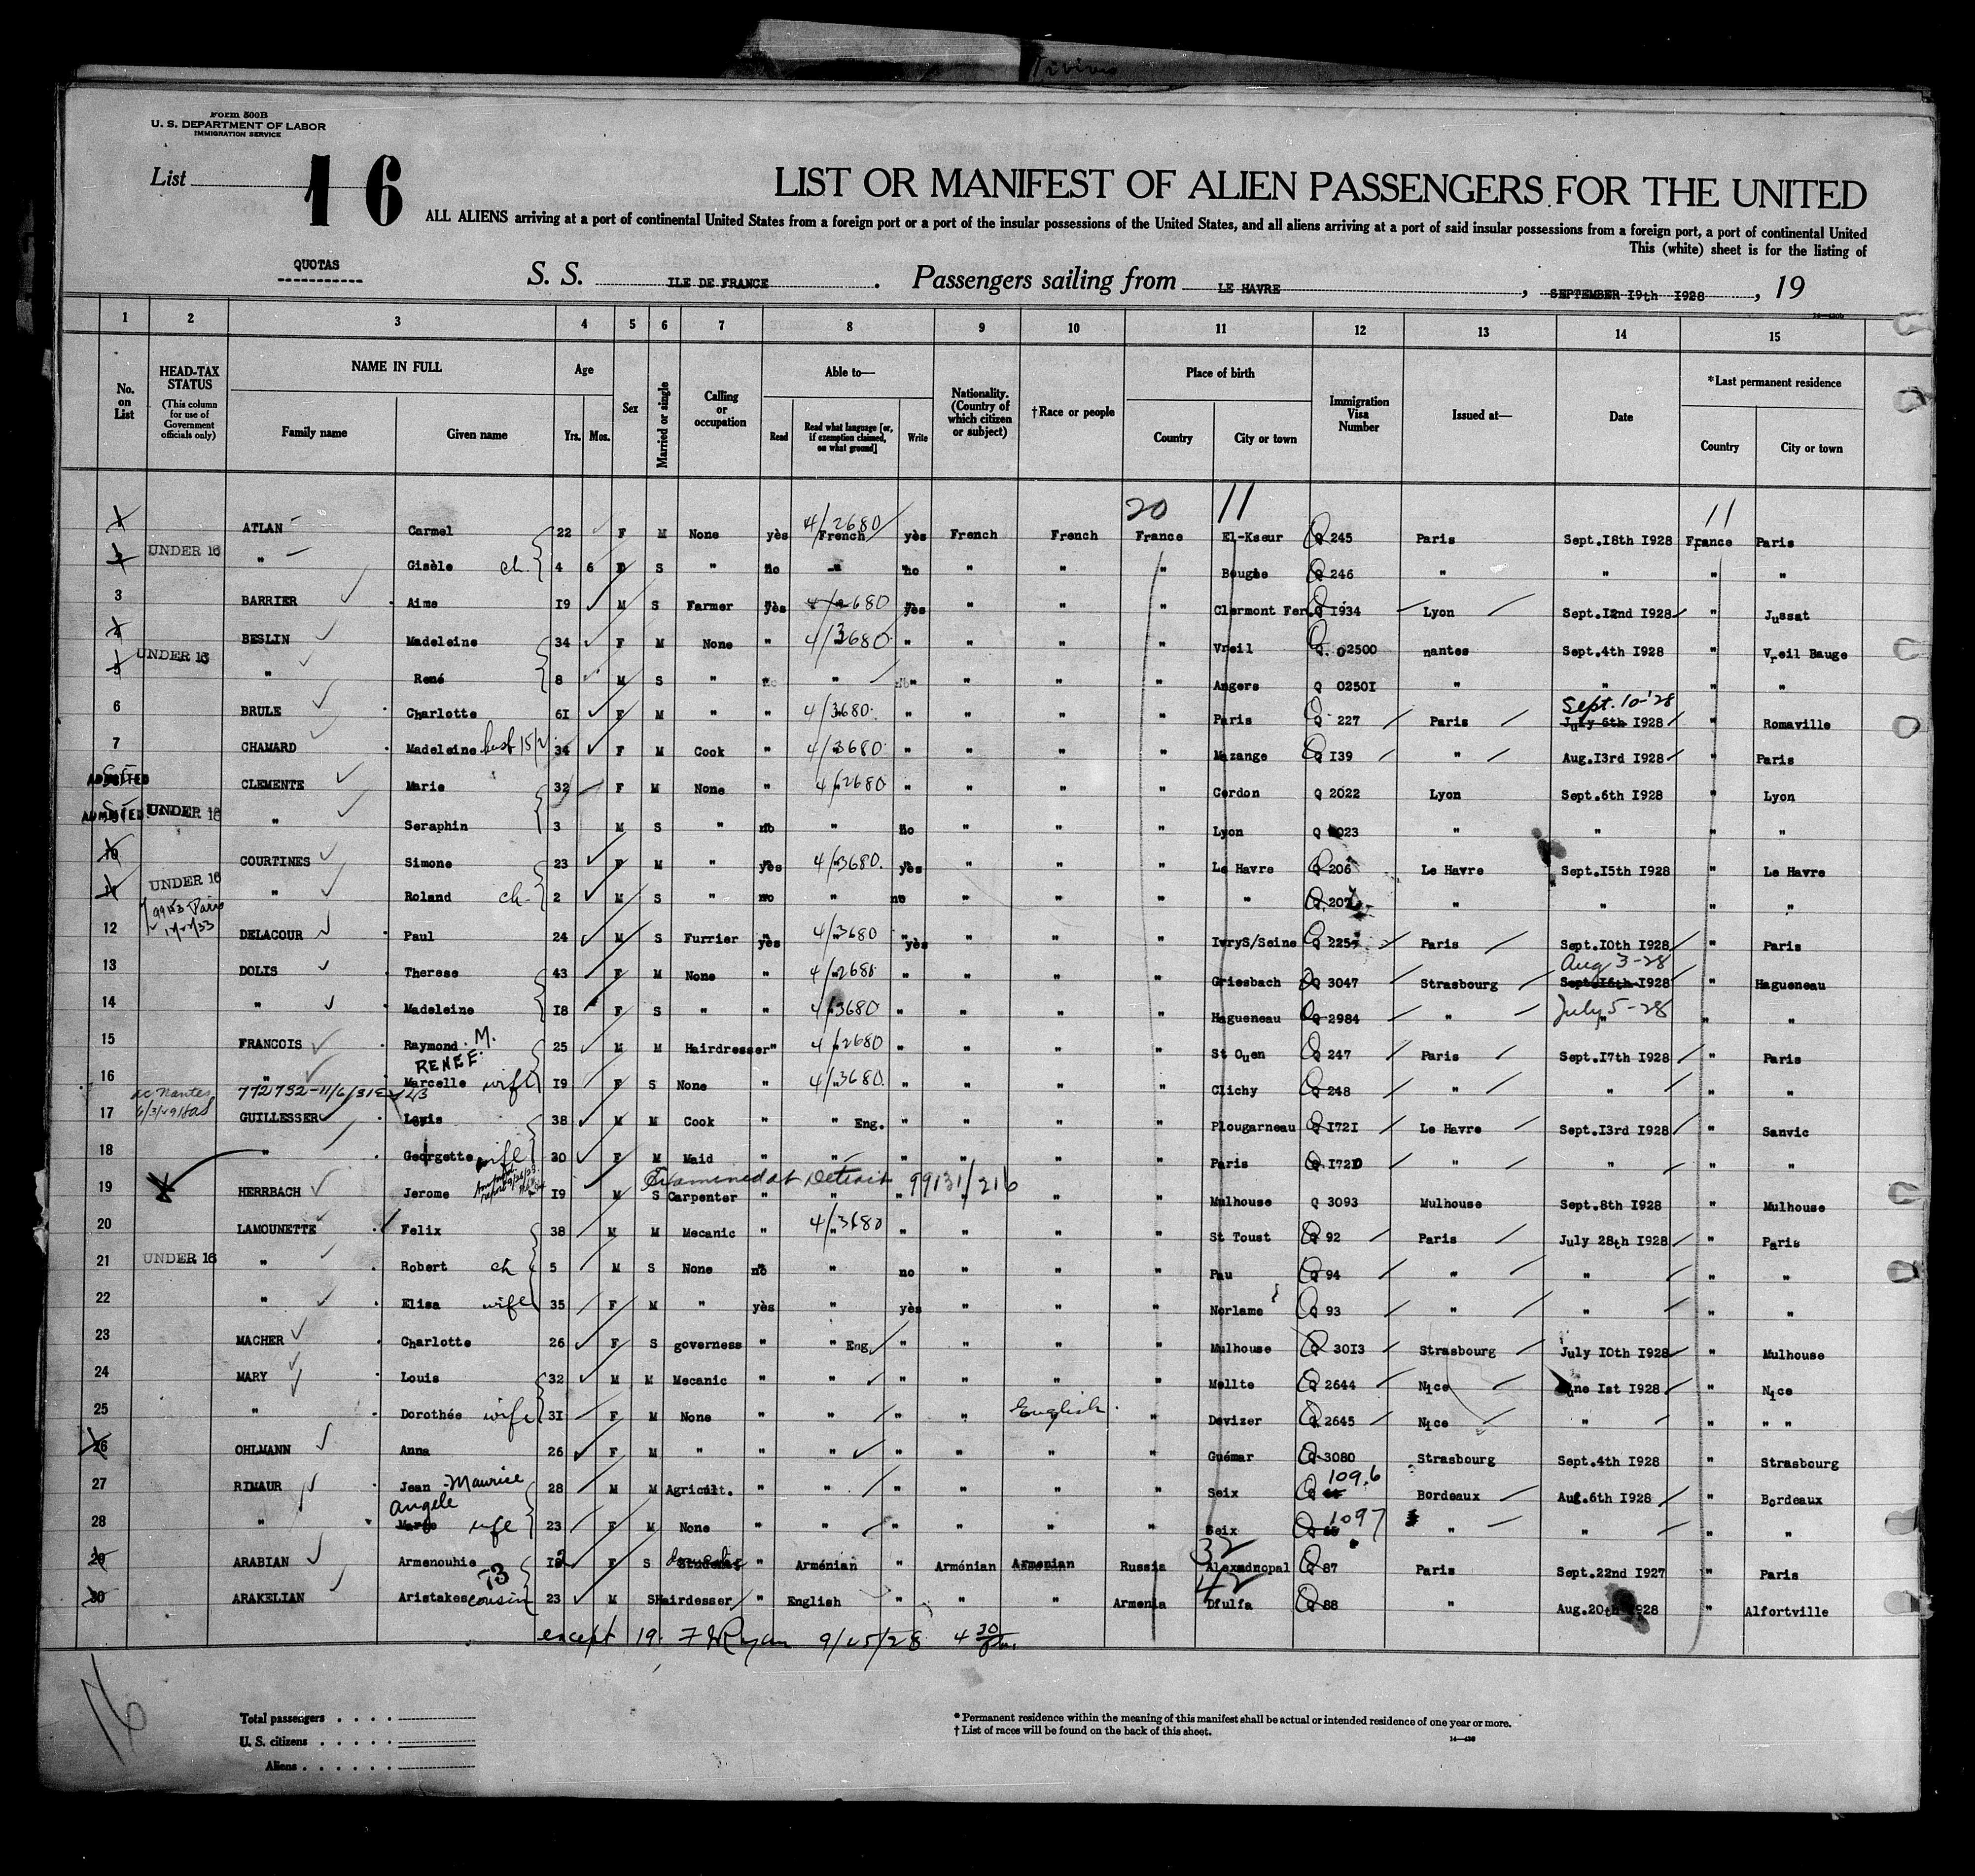 Form 500B
U. S. DEPARTMENT OF LABOR
IMMIGRATION SERVICE
List 16
LIST OR MANIFEST OF ALIEN PASSENGERS FOR THE UNITED
ALL ALIENS arriving at a port of continental United States from a foreign port or a port of the insular possessions of the United States, and all aliens arriving at a port of said insular possessions from a foreign port, a port of continental United
This (white) sheet is for the listing of
QUOTAS
S. S. ILE DE FRANCE. Passengers sailing from LE HAVRE, SEPTEMBER 19th 1928, 19
1 2 3 4 5 6 7 8 9 10 11 12 13 14 15
No. on List
HEAD-TAX STATUS (This column for use of Government officials only)
NAME IN FULL Family name Given name
Age Yrs. Mos.
Sex
Married or single
Calling or occupation
Able to— Read Read what language [or, if exemption claimed, on what ground] Write
Nationality. (Country of which citizen or subject)
†Race or people
Place of birth Country City or town
Immigration Visa Number
Issued at—
Date
*Last permanent residence Country City or town
20 11 11
1 ATLAN Carmel 22 F M None yès 4/2680 French yès French French France El-Kseur Q 245 Paris Sept.18th 1928 France Paris
2 UNDER 16 " Gisèle ch. 4 6 F S " no " no " " " Bougie Q 246 " " " "
3 BARRIER Aime 19 M S Farmer yès 4/2680 yès " " " Clermont Fer. Q 1934 Lyon Sept.12nd 1928 " Jussat
4 BESLIN Madeleine 34 F M None " 4/3680 " " " " Vreil Q. 02500 nantes Sept.4th 1928 " Vreil Bauge
5 UNDER 16 " René 8 M S " " " " " " " Angers Q 02501 " " " "
6 BRULE Charlotte 61 F M " " 4/3680. " " " " Paris Q 227 Paris July 6th 1928 Sept. 10-'28 " Romaville
7 CHAMARD Madeleine 34 F M Cook " 4/3680. " " " " Mazange Q 139 " Aug.13rd 1928 " Paris
ADMITTED CLEMENTE Marie 32 F M None " 4/2680 " " " " Cordon Q 2022 Lyon Sept.6th 1928 " Lyon
ADMITTED UNDER 16 " Seraphin 3 M S " no " no " " " Lyon Q 2023 " " " "
10 COURTINES Simone 23 F M " yès 4/3680. yès " " " Le Havre Q 206 Le Havre Sept.15th 1928 " Le Havre
11 UNDER 16 " Roland ch. 2 M S " no " no " " " " Q.207 " " " "
12 DELACOUR Paul 24 M S Furrier yès 4/3680 yès " " " IvryS/Seine Q 2257 Paris Sept.10th 1928 " Paris
13 DOLIS Therese 43 F M None " 4/2680 " " " " Griesbach Q 3047 Strasbourg Sept.15th 1928 Aug 3-28 " Hagueneau
14 " Madeleine 18 F S " " 4/3680 " " " " Hagueneau Q 2984 " July 5-28 " "
15 FRANCOIS Raymond. M. 25 M M Hairdresser " 4/2680 " " " " St Ouen Q 247 Paris Sept.17th 1928 " Paris
RENEE.
16 " Marcelle wife 19 F S None " 4/3680. " " " " Clichy Q 248 " " " "
772752-11/6/31
17 GUILLESSER Louis 38 M M Cook " " Eng. " " " " Plougarneau Q 1721 Le Havre Sept.13rd 1928 " Sanvic
18 " Georgette wife 30 F M Maid " " " " " " Paris Q.1720 " " " "
Examined at Detroit 99131/216
19 HERRBACH Jerome 19 M S Carpenter " " " " " " Mulhouse Q 3093 Mulhouse Sept.8th 1928 " Mulhouse
20 LAMOUNETTE Felix 38 M M Mecanic " 4/3680 " " " " St Toust Q 92 Paris July 28th 1928 " Paris
21 UNDER 16 " Robert ch 5 M S None no " no " " " Pau Q 94 " " " "
22 " Elisa wife 35 F M " yès " yès " " " Norlame Q 93 " " " "
23 MACHER Charlotte 26 F S governess " " Eng " " " " Mulhouse Q 3013 Strasbourg July 10th 1928 " Mulhouse
24 MARY Louis 32 M M Mecanic " " " " " " Mellte Q 2644 Nice June 1st 1928 " Nice
25 " Dorothée wife 31 F M None " " " " English " Devizer Q 2645 Nice " " " "
26 OHLMANN Anna 26 F M " " " " " " " Guémar Q 3080 Strasbourg Sept.4th 1928 " Strasbourg
27 RIMAUR Jean Maurice 28 M M Agricult. " " " " " " Seix Q 1096 Bordeaux Aug.6th 1928 " Bordeaux
Angele
28 " Marge wife 23 F M None " " " " " " Seix Q 1097 " " " "
29 ARABIAN Armenouhie 18 F S Student " Arménian " Arménian Armenian Russia Alexadnopol 32 Q 87 Paris Sept.22nd 1927 " Paris
30 ARAKELIAN Aristakes cousin 23 M S Hairdesser " English " " " Armenia Dfulfa 42 Q 88 " Aug.20th 1928 " Alfortville
except 19. F J Ryan 9/25/28 4 30 Pm.
16
Total passengers . . . .
U. S. citizens . . . . .
Aliens . . . . . .
* Permanent residence within the meaning of this manifest shall be actual or intended residence of one year or more.
† List of races will be found on the back of this sheet.
14—430